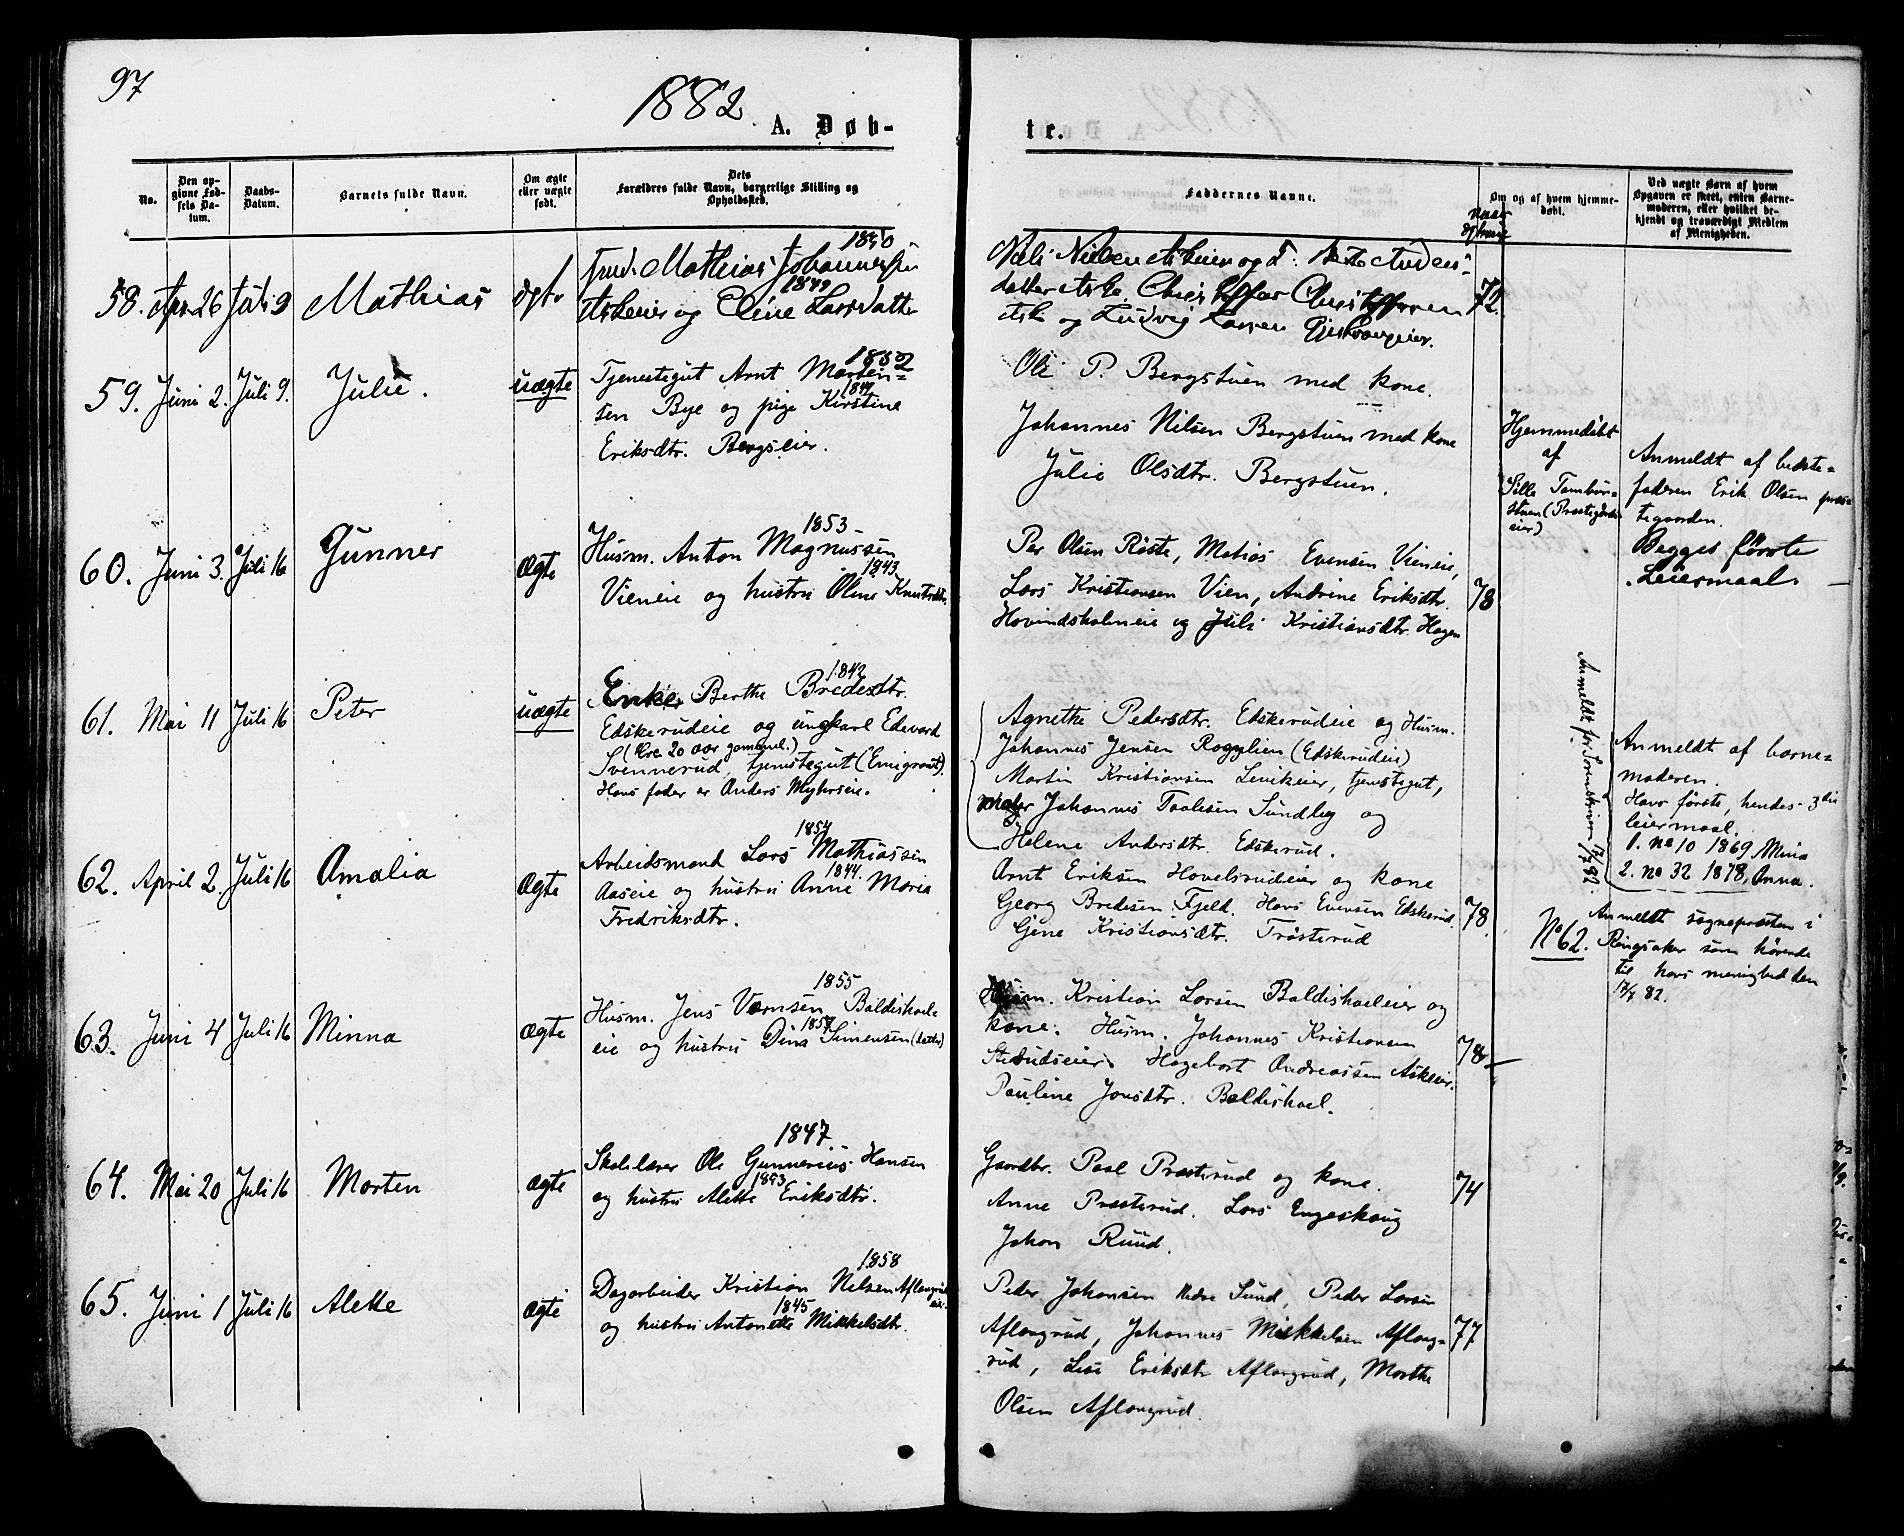 97
1882
A. Døb-
te.
No.
Den op-
givne Fød-
sels Da-
tum.
Daabs-
Datum.
Barnets fulde Navn.
Om ægte
eller uægte
født.
Dets
Forældres fulde Navn, borgerlige Stilling og
Opholdssted.
Faddernes Navne.
Om og af hvem hjemme-
døbt.
Ved uægte Barn af hvem
Opgaven er skeet, enten Barne-
moderen, eller hvilket be-
kjendt og troværdigt Medlem
af Menigheden.
58. Apr. 26 Juli 9 Mathias ægte
1850
Mathias Johannessen
1849
Askeier og Eline Larsdatter
Nils Nielsen Askeier og
datter Aske Christoffer Christoffersen
Aske og Ludvig Larsen
72
59. Juni 2. Juli 9. Julie. uægte
1852
Tjenestegut Arnt Morten-
1849
sen Bye og pige Kirstine
Eriksdtr. Bergseier.
Ole P. Bergstuen med kone.
Johannes Nilsen Bergstuen med kone
Julie Olsdtr. Bergstuen.
Hjemmedøbt
af
Sille Tambur-
stuen (Prestegårds-
eier)
Anmeldt af bedste-
faderen Erik Olsen præs-
tegaarden.
Begges første
Leiermaal.
60. Juni 3. Juli 16 Gunner ægte
1853
Husm. Anton Magnussen
1843
Vieneie og hustru Oline Knutsdtr.
Per Olsen Røste, Matias Evensen Vieneie,
Lars Kristiansen Vien, Andrine Eriksdtr.
Hovindsholmeie og Juli Kristiansdtr. Hagen
78
61. Mai 11 Juli 16 Peter uægte
1842
Enke Berthe Bredesdtr.
Edskerudeie og ungkarl Edevard
(Cre. 20 aar gammel.)
Svennerud, tjenstegut (Emigrant).
Hans fader er Anders Myhrseie.
Agnethe Pedersdtr. Edskerudeie og Husm.
Johannes Jensen Rognlien (Edskerudeie)
Martin Kristiansen Lenikeier, tjenstegut,
maler Johannes Paalsen Sundby og
Helene Andersdtr. Edskerud.
Anmeldt for Sorenskriver 17/7 82.
Anmeldt af barne-
moderen.
Hans første, hendes 3die
leiermaal.
1. no 10 1869, Mina
2. no 32 1878, Anna.
62. April 2. Juli 16 Amalia ægte
1854
Arbeidsmand Lars Mathiassen
1844.
Aaseie og hustru Anne Maria
Fredriksdtr.
Arnt Eriksen Hovelsrudeier og kone
Georg Bredesen Fjeld. Hans Evensen Edskerud.
Gine Kristiansdtr. Trøsterud
78.
No 62.
Anmeldt sognepræsten i
Ringsaker som hørende
til hans menighed den
17/7 82.
63. Juni 4 Juli 16 Minna ægte
1855
Husm. Jens Vernsen Baldishoel-
1857
eie og hustru Dina Simensen (datter)
Husm. Kristian Larsen Baldishoeleier og
kone. Husm. Johannes Kristiansen
Stenudseier. Hagebart Andreassen Askeier.
Pauline Jonsdtr. Baldishoel.
78
64. Mai 20 Juli 16 Morten ægte
1847
Skolelærer Ole Gunnerius Hansen
1853
og hustru Alette Eriksdtr.
Gaardbr. Paal Præsterud og kone.
Anne Præsterud. Lars Engeskaug
Johan Ruud.
74
65. Juni 1 Juli 16 Alette ægte
1858
Dagarbeider Kristian Nelsen Aflangrud
1845
og hustru Antonette Mikkelsdtr.
Peder Johansen Nedre Sund, Peder Larsen
Aflangrud, Johannes Mikkelsen Aflang-
rud, Lise Eriksdtr Aflangrud, Marthe
Olsen Aflangrud.
77